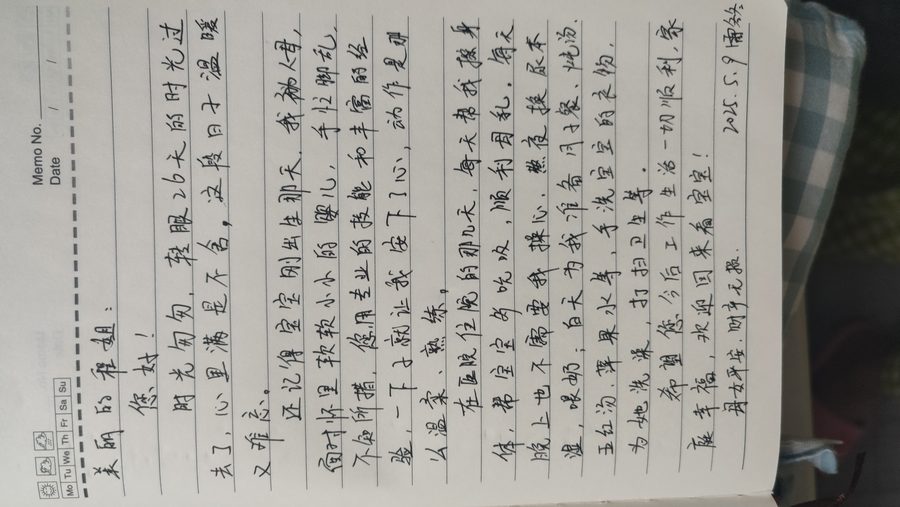 Memo No.
Date / /
Mo Tu We Th Fr Sa Su
美丽的程姐：
您好！
时光匆匆，转眼26天的时光过
去了，心里满是不舍，这段日子温暖
又难忘。
还记得宝宝刚出生那天，我初为人母，
面对怀里软软小小的婴儿，手忙脚乱，
不知所措，您用专业的技能和丰富的经
验，一下子就让我安下了心，动作是那
么温柔、熟练。
在医院住院的那几天，每天帮我擦身
体，帮宝宝多吮吸，顺利母乳。每天
晚上也不需要我操心，熬夜换尿不
湿，喂奶；白天为我准备月子餐、炖汤
五红汤、苹果水等，手洗宝宝的衣物，
为她洗澡，打扫卫生等。
希望您今后工作生活一切顺利，家
庭幸福，欢迎回来看宝宝！
母女平安，
2025.5.9